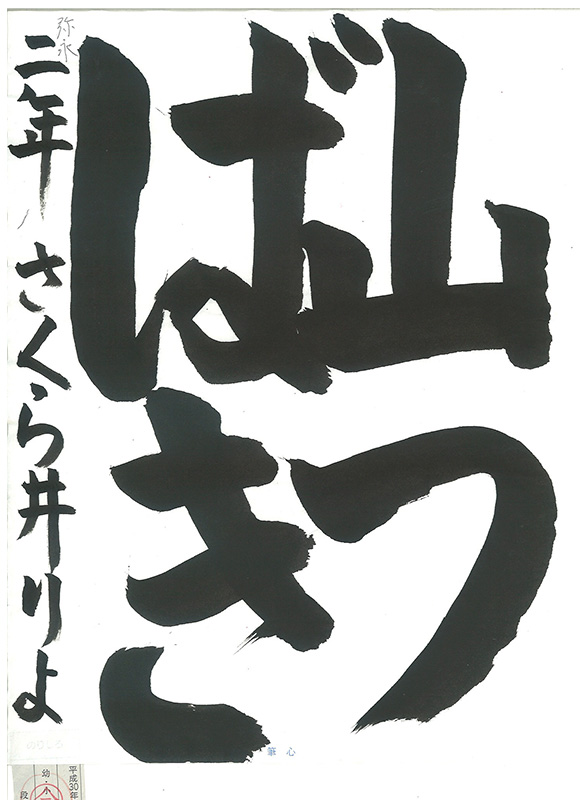 山つ
ばき
弥永
二年 さくら井りよ
筆心
のりしろ
平成30年
幼・小
段